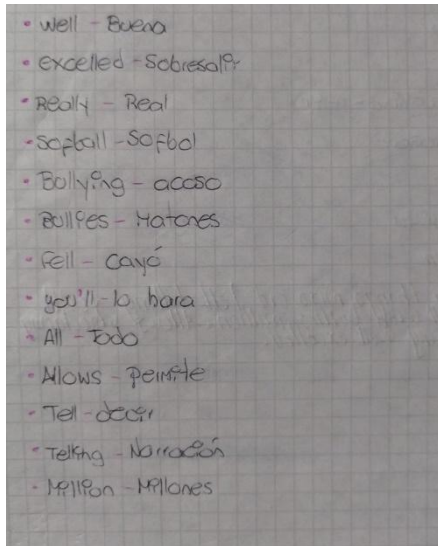 • well - Buena
• excelled - Sobresalir
• Really - Real
• Softball - Sofbol
• Bollying - acoso
• Bullies - Matones
• Fell - cayó
• you'll - lo hara
• All - Todo
• Allows - permite
• Tell - decir
• Telking - Narración
• Million - Millones